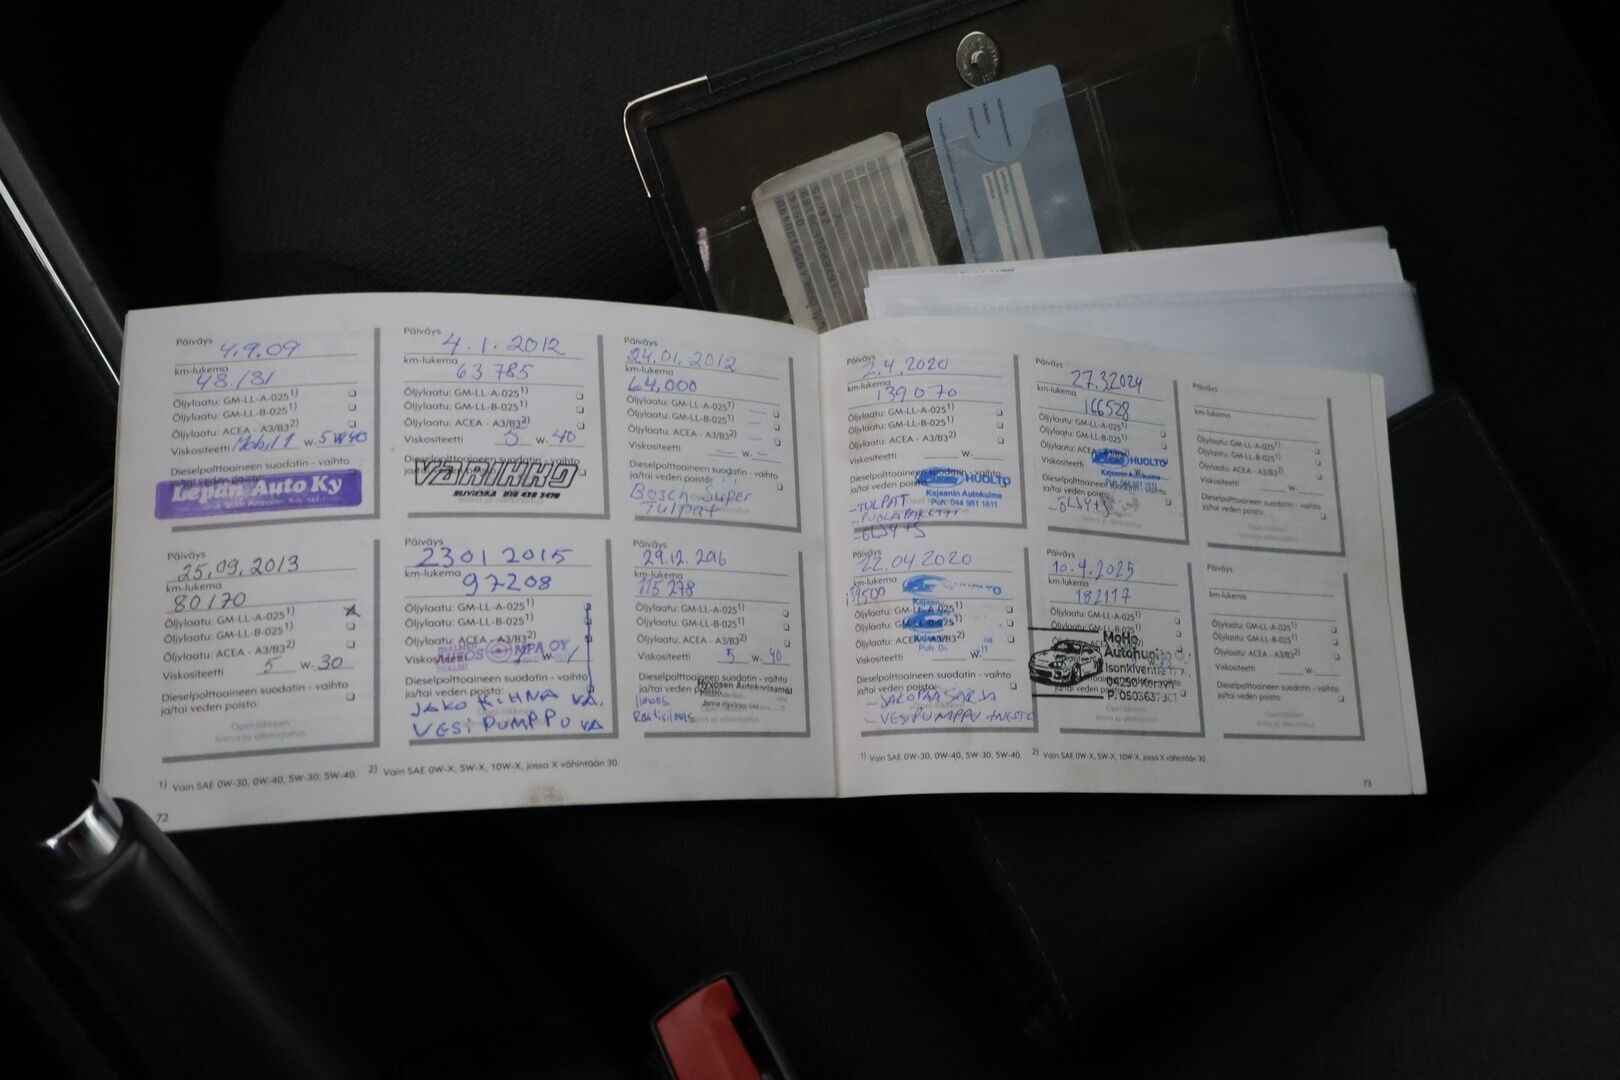 Päiväys
4.9.09
km-lukema
48.181
Öljylaatu: GM-LL-A-025 1)
Öljylaatu: GM-LL-B-025 1)
Öljylaatu: ACEA - A3/B3 2)
Viskositeetti Mobil 1 w. 5W40
Dieselpolttoaineen suodatin - vaihto
Lepän Auto Ky
Päiväys
4.1.2012
km-lukema
63 785
Öljylaatu: GM-LL-A-025 1)
Öljylaatu: GM-LL-B-025 1)
Öljylaatu: ACEA - A3/B3 2)
Viskositeetti 5 w. 40
Dieselpolttoaineen suodatin - vaihto
VARIKKO
Päiväys
24.01.2012
km-lukema
64,000
Öljylaatu: GM-LL-A-025 1)
Öljylaatu: GM-LL-B-025 1)
Öljylaatu: ACEA - A3/B3 2)
Viskositeetti w.
Dieselpolttoaineen suodatin - vaihto
ja/tai veden poisto:
Bosch Super
Tulpat
Päiväys
25.09.2013
km-lukema
80170
Öljylaatu: GM-LL-A-025 1) X
Öljylaatu: GM-LL-B-025 1)
Öljylaatu: ACEA - A3/B3 2)
Viskositeetti 5 w. 30
Dieselpolttoaineen suodatin - vaihto
ja/tai veden poisto:
Opel-liikkeen
leima ja allekirjoitus
Päiväys
23 01 2015
km-lukema
97208
Öljylaatu: GM-LL-A-025 1)
Öljylaatu: GM-LL-B-025 1)
Öljylaatu: ACEA - A3/B3 2)
Dieselpolttoaineen suodatin - vaihto
ja/tai veden poisto:
JAKO KIHNA VA.
VESI PUMPPU VA
Päiväys
29.12.2016
km-lukema
115 278
Öljylaatu: GM-LL-A-025 1)
Öljylaatu: GM-LL-B-025 1)
Öljylaatu: ACEA - A3/B3 2)
Viskositeetti 5 w. 40
Dieselpolttoaineen suodatin - vaihto
ja/tai veden poisto:
Hyvösen Autokorjaamo
1) Vain SAE 0W-30, 0W-40, 5W-30, 5W-40. 2) Vain SAE 0W-X, 5W-X, 10W-X, jossa X vähintään 30.
72
Päiväys
2.4.2020
km-lukema
139 070
Öljylaatu: GM-LL-A-025 1)
Öljylaatu: GM-LL-B-025 1)
Öljylaatu: ACEA - A3/B3 2)
Viskositeetti w.
Dieselpolttoaineen suodatin - vaihto
ja/tai veden poisto:
HUOLTO
Kajaanin Autokulma
Puh. 044 981 1811
-TULPAT
-PUOLAPAKETTI
-ÖLJYT+S
Päiväys
27.3.2024
km-lukema
166528
Öljylaatu: GM-LL-A-025 1)
Öljylaatu: GM-LL-B-025 1)
Öljylaatu: ACEA - A3/B3 2)
Viskositeetti
HUOLTO
Kajaanin Autokulma
Dieselpolttoaineen suodatin - vaihto
ja/tai veden poisto:
-ÖLJYT+S
Päiväys
km-lukema
Öljylaatu: GM-LL-A-025 1)
Öljylaatu: GM-LL-B-025 1)
Öljylaatu: ACEA - A3/B3 2)
Viskositeetti w.
Dieselpolttoaineen suodatin - vaihto
ja/tai veden poisto:
Päiväys
22.04.2020
km-lukema
139500
HUOLTO
Öljylaatu: GM-LL-A-025 1)
Öljylaatu: GM-LL-B-025 1)
Öljylaatu: ACEA - A3/B3 2)
Viskositeetti w.
Dieselpolttoaineen suodatin - vaihto
ja/tai veden poisto:
-JAKOPÄÄSARJA
-VESIPUMPPU +NESTE
Päiväys
10.4.2025
km-lukema
182117
Öljylaatu: GM-LL-A-025 1)
Öljylaatu: GM-LL-B-025 1)
MoHo
04250 Kerava
Dieselpolttoaineen suodatin - vaihto
ja/tai veden poisto:
Päiväys
km-lukema
Öljylaatu: GM-LL-A-025 1)
Öljylaatu: GM-LL-B-025 1)
Öljylaatu: ACEA - A3/B3 2)
Viskositeetti w.
Dieselpolttoaineen suodatin - vaihto
ja/tai veden poisto:
1) Vain SAE 0W-30, 0W-40, 5W-30, 5W-40. 2) Vain SAE 0W-X, 5W-X, 10W-X, jossa X vähintään 30.
73